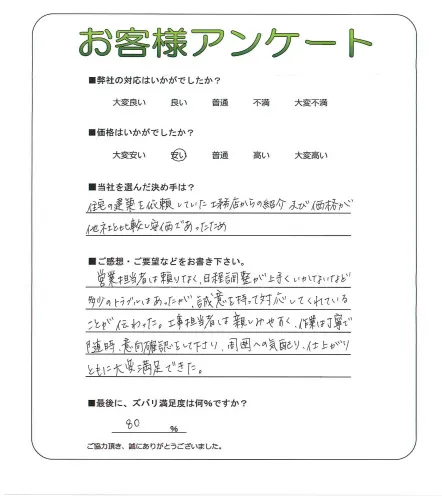 お客様アンケート
■弊社の対応はいかがでしたか？
大変良い 良い 普通 不満 大変不満
■価格はいかがでしたか？
大変安い 安い 普通 高い 大変高い
■当社を選んだ決め手は？
住宅の建築を依頼していた工務店からの紹介及び価格が
他社と比較し安価であったため
■ご感想・ご要望などをお書き下さい。
営業担当者は頼りなく、日程調整が上手くいかないなど
多少のトラブルはあったが、誠意を持って対応してくれている
ことが伝わった。工事担当者は親しみやすく、作業は丁寧で
随時、意向確認をして下さり、周囲への気配り、仕上がり
ともに大変満足できた。
■最後に、ズバリ満足度は何%ですか？
80 %
ご協力頂き、誠にありがとうございました。